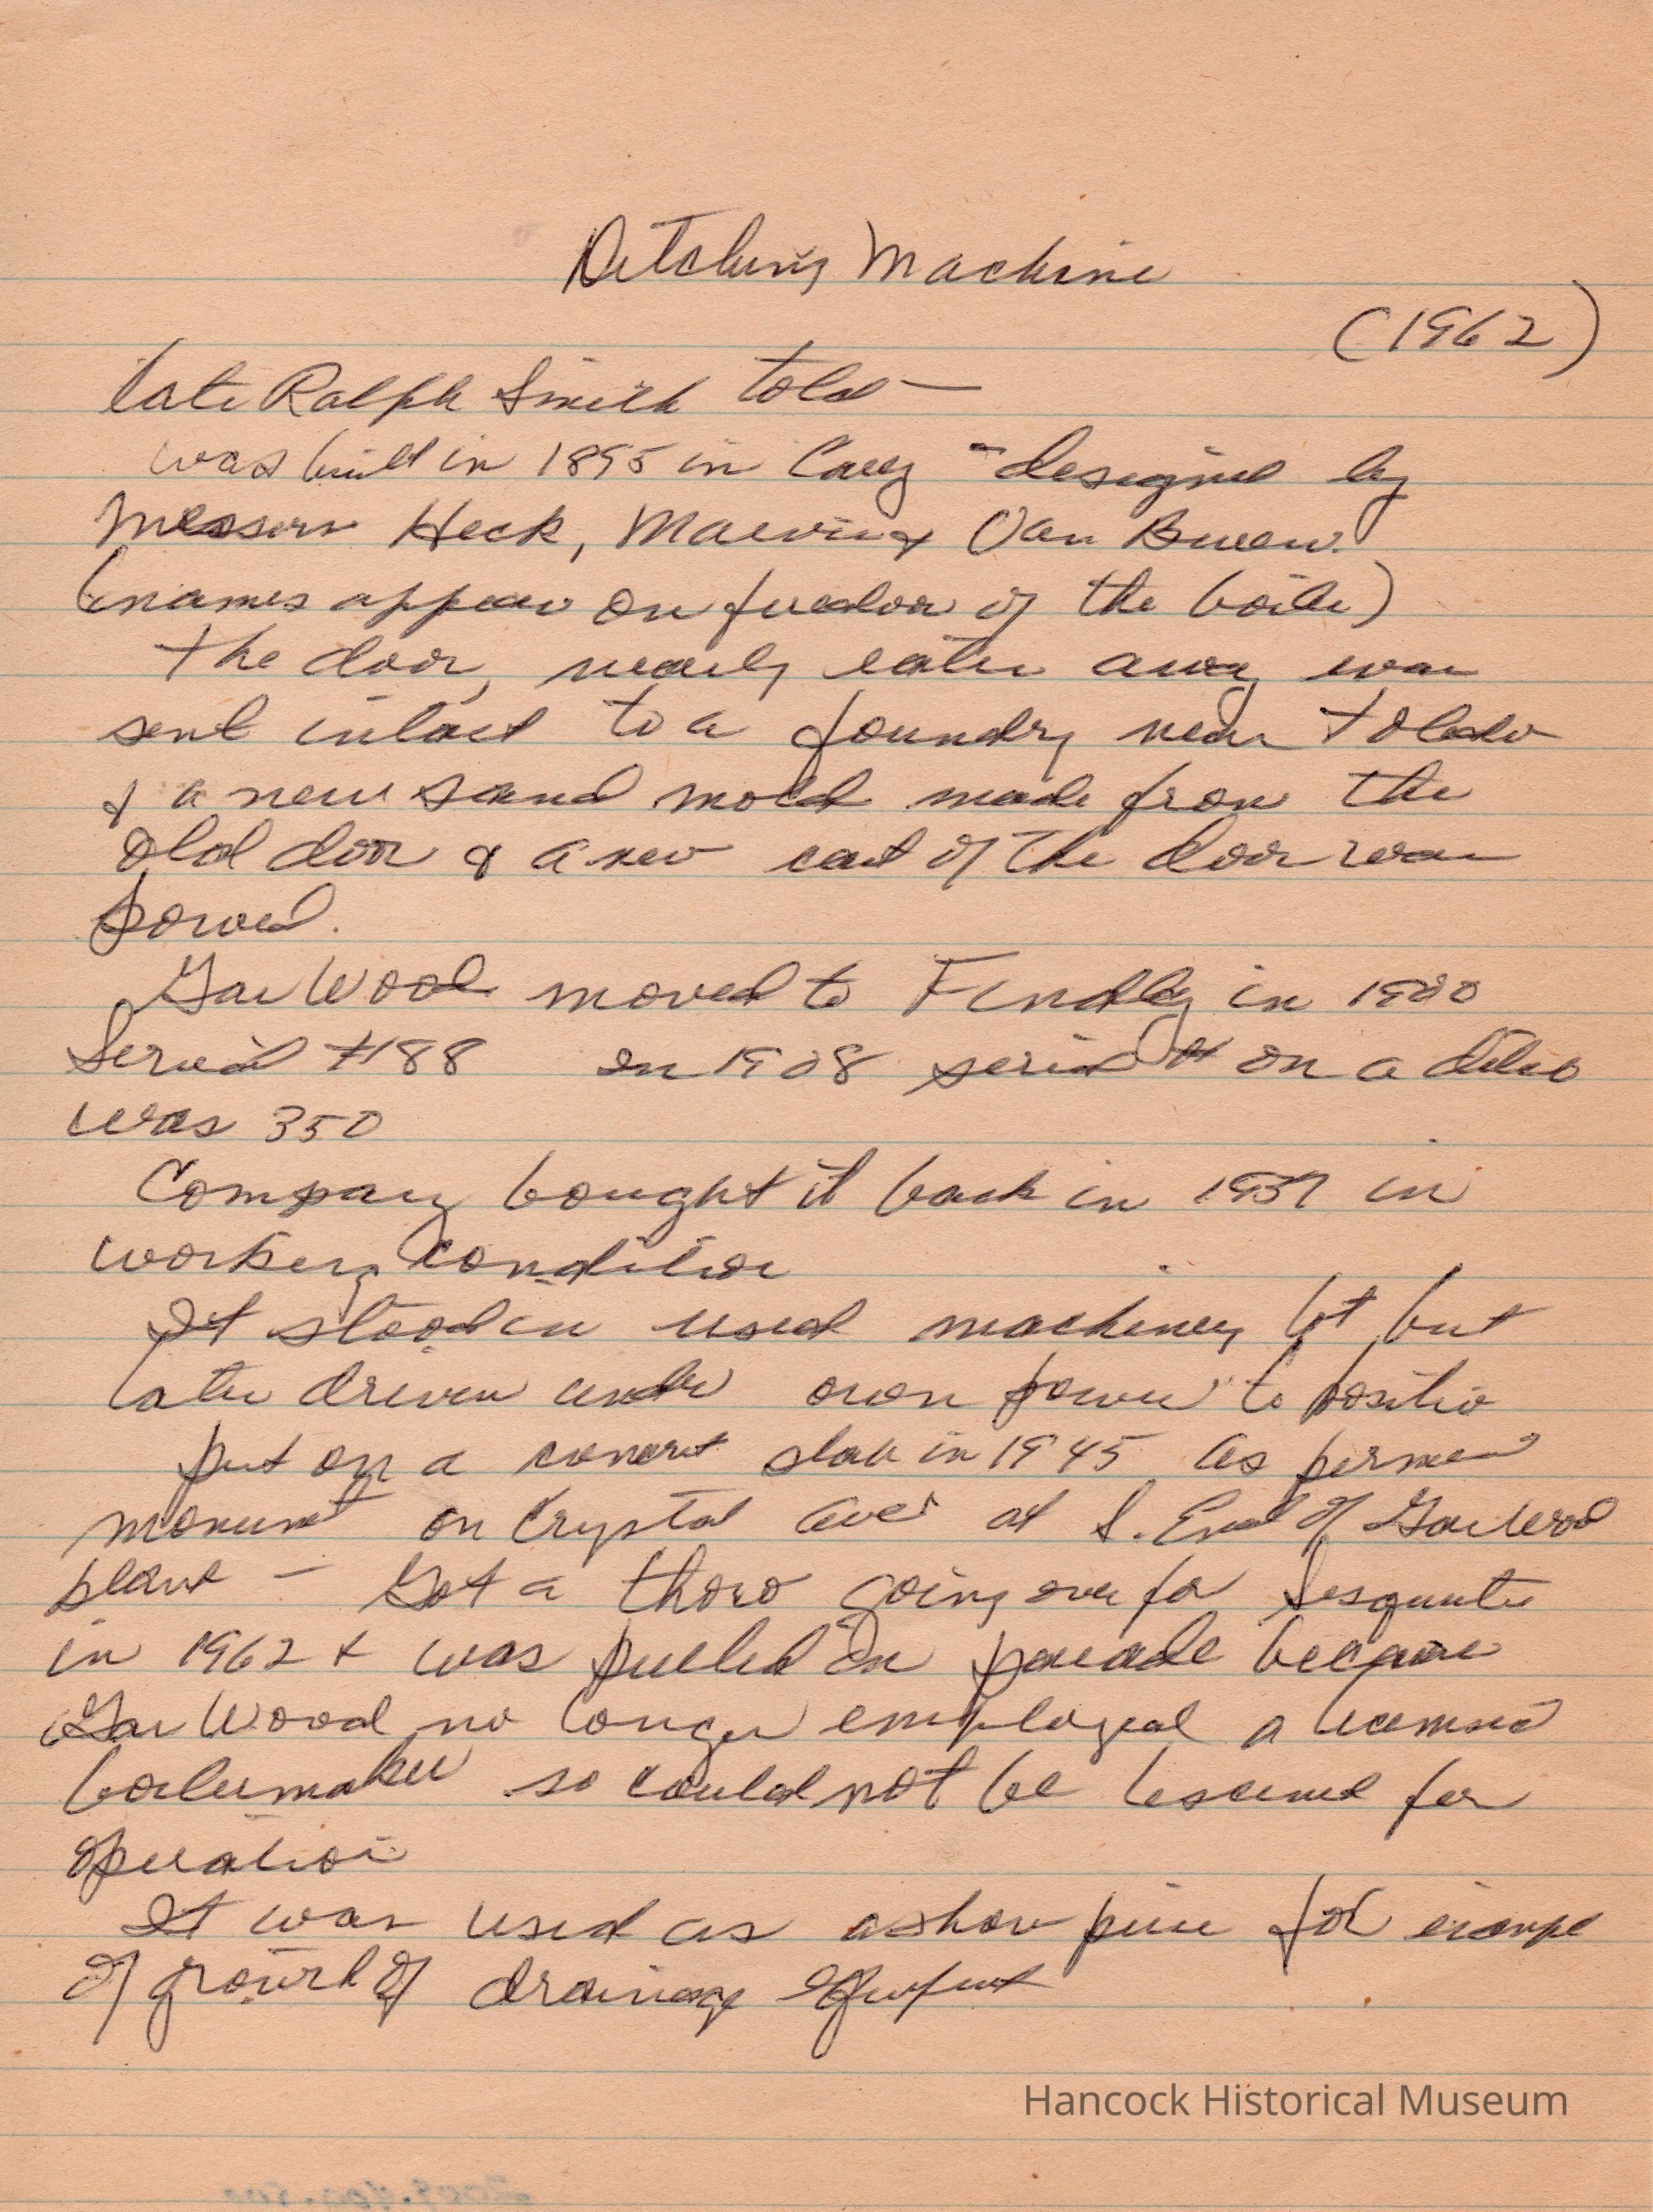 Ditching Machine
(1962)
late Ralph Smith told —
was built in 1895 in Carey - designed by
Messers Heck, Marvin & Van Buren.
(names appear on firedoor of the boiler)
the door, nearly eaten away was
sent intact to a foundry near Toledo
& a new sand mold made from the
old door & a new cast of the door was
poured.
Gar Wood moved to Findlay in 1900
Serial #188 In 1908 serial # on a ditcher
was 350
Company bought it back in 1937 in
working condition
It stood in used machinery lot but
later driven under own power to position
put on a concret slab in 1945 as perment
monumt on Crystal Ave at S. End of Gar Wood
plant - Got a thoro going over for Sesquente
in 1962 & was pulled in parade because
Gar Wood no longer employed a licensed
boilermaker so could not be licensed for
operation
It was used as a show piece for example
of growth of drainage
Hancock Historical Museum